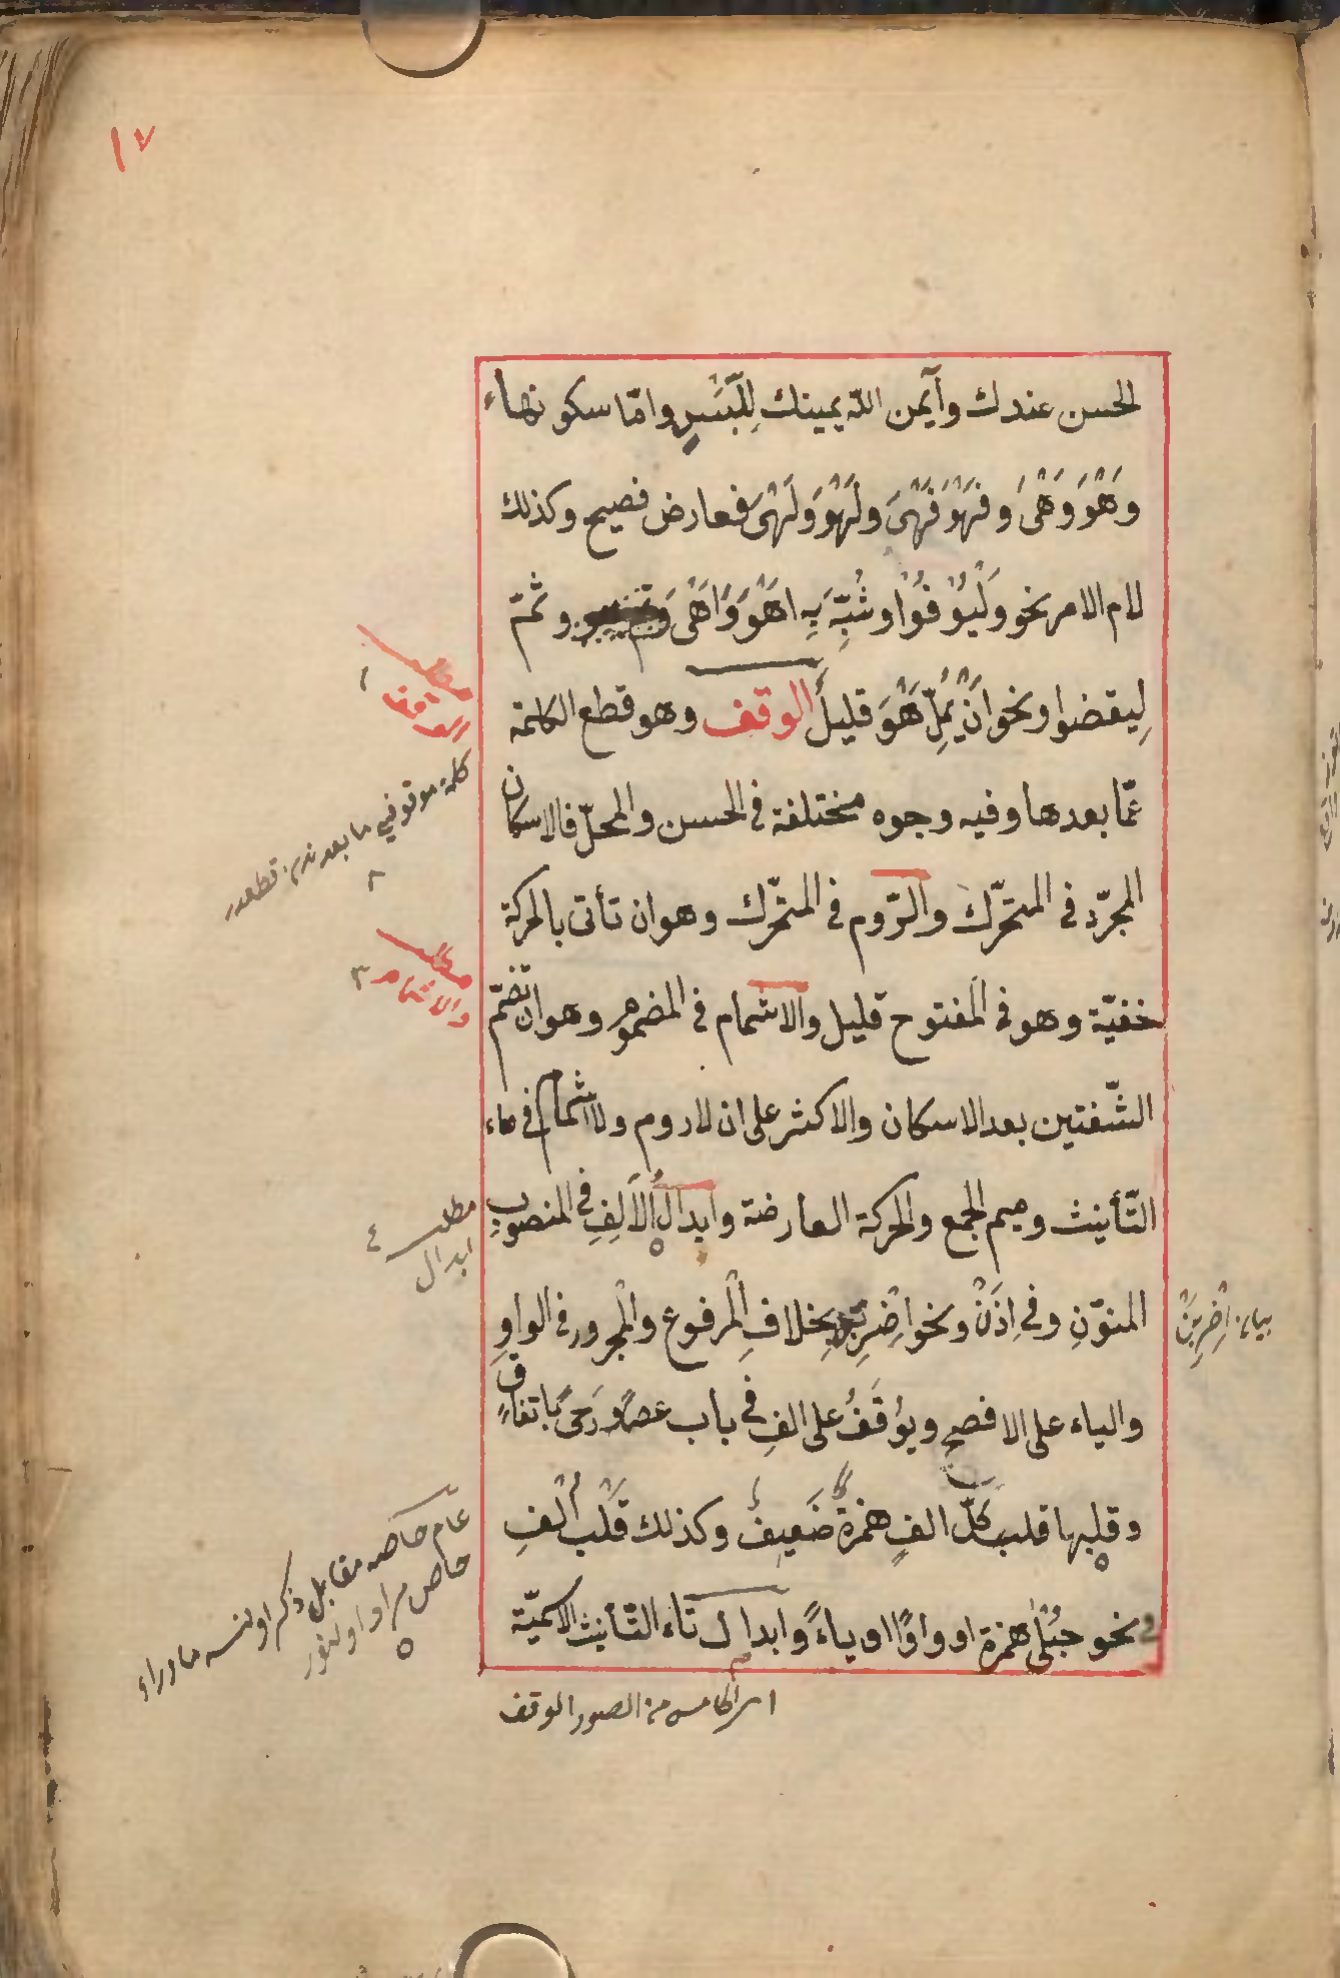 ١٧
الحسن عندك وآيمن الله يمينك لِلَّبْسِ واما سكونهاء
وَهْوَ وَهْىَ وفَهْوَ فَهْىَ ولَهْوَ ولَهْىَ فعارض فصيح وكذلك
لام الامر نحو وَلْيُوْفُوْا وشُبِّهَ بِهِ اهْوَ وَاهْىَ وثمّ
لِيقضوا ونحو اَنْ يُمِلَّ هْوَ قليلٌ الوقف وهو قطع الكلمة
عمّا بعدها وفيه وجوه مختلفة في الحسن والمحلّ فالاسكان
المجرّد في المتحرّك والرّوم في المتحرّك وهو ان تأتى بالحركة
خفيّة وهو في المفتوح قليل والاشمام في المضموم وهو ان تضمّ
الشّفتين بعد الاسكان والاكثر على ان لا روم ولا اشمام في هاء
التّأنيث وميم الجمع والحركة العارضة وابدالُ الاَلِفِ في المنصوبِ
المنوّنِ وفي اِذَنْ ونحو اِضْرِبَنْ بِخلافِ الْمرفوع والمجرور في الواوِ
والياء على الافصح ويُوْقَفُ على الفِ في باب عصًا ورَحىً باتفاقٍ
وقلبها قلب كلّ الفٍ همزةً ضَعِيفٌ وكذلك قَلْبُ اَلْفِ
نحو حُبْلٰى همزة او واوًا او ياءً وابدال تاء التّأنيث الاسميّة
مطلب
الوقف
كلمة موقوفي ما بعدندن قطعدر
مطلب
والاشمام ٣
مطلب ٤
ابدال
بيان اِضْرِبَنْ
عام خاصه مقابل ذكر اولنسه ماوراء
خاص مراد اولنور
الخامس من الصور الوقف